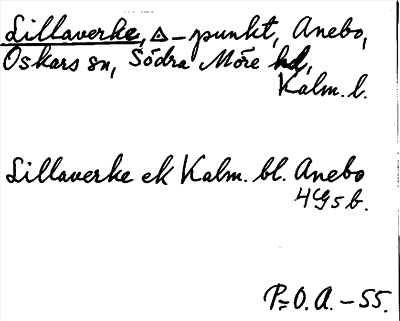 Lillaverke, △-punkt, Anebo,
Oskars sn, Södra Möre hd,
Kalm. l.
Lillaverke ek Kalm. bl. Anebo
4G5b.
P=O.A. – 55.